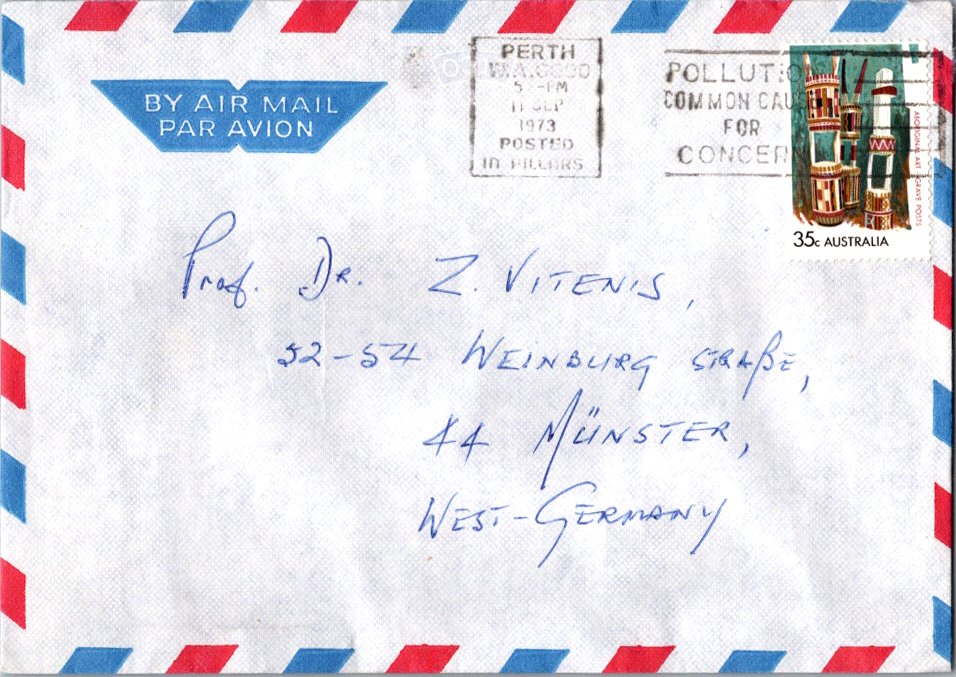 BY AIR MAIL
PAR AVION
PERTH
W.A. 6000
5 -PM
11 SEP
1973
POSTED
IN PILLARS
POLLUTIO
COMMON CAUSE
FOR
CONCER
ABORIGINAL ART - GRAVE POSTS
35c AUSTRALIA
Prof. Dr. Z. VITENIS,
52-54 WEINBURG STRAßE,
44 MÜNSTER,
WEST-GERMANY